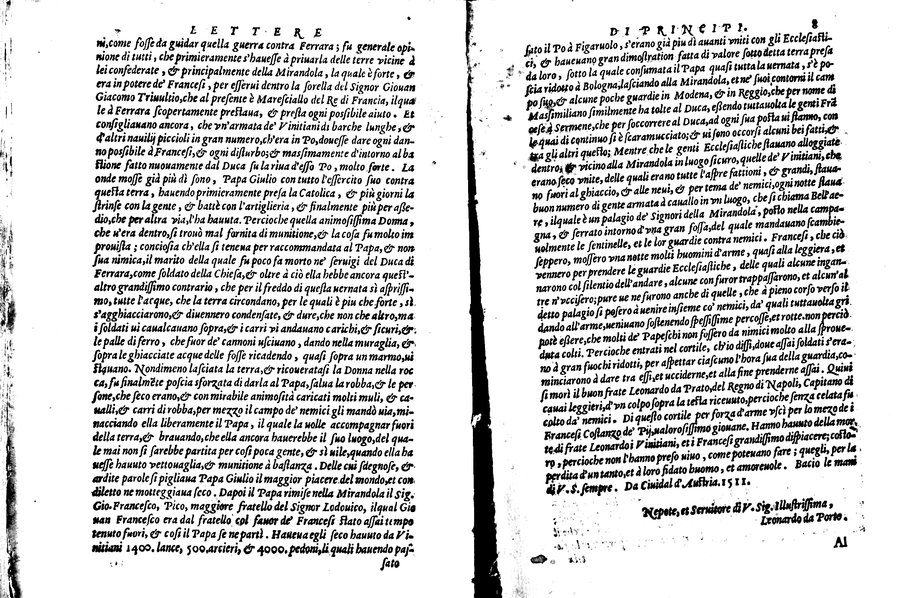 LETTERE
ni, come fosse da guidar quella guerra contra Ferrara; fu generale opi
nione di tutti, che primieramente s'hauesse à priuarla delle terre vicine à
lei confederate, & principalmente della Mirandola, la quale è forte, &
era in potere de' Francesi, per esserui dentro la sorella del Signor Giouan
Giacomo Triuultio, che al presente è Maresciallo del Re di Francia, il qua
le à Ferrara scopertamente prestaua, & presta ogni possibile aiuto. Et
consigliauano ancora, che vn'armata de' Vinitiani di barche lunghe, &
d'altri nauilij piccioli in gran numero, ch'era in Po, douesse dare ogni dan-
no possibile à Francesi, & ogni disturbo; & massimamente d'intorno al ba
stione fatto nuouamente dal Duca su la riua d'esso Po, molto forte. La
onde mosse già più dì sono, Papa Giulio con tutto l'essercito suo contra
questa terra, hauendo primieramente presa la Catolica, & più giorni la
strinse con la gente, & battè con l'artiglieria, & finalmente più per asse-
dio, che per altra via, l'ha hauuta. Percioche quella animosissima Donna,
che v'era dentro, si trouò mal fornita di munitione, & la cosa fu molto im
prouista; conciosia ch'ella si teneua per raccommandata al Papa, & non
sua nimica, il marito della quale fu poco fa morto ne' serui gi del Duca di
Ferrara, come soldato della Chiesa, & oltre à ciò ella hebbe ancora quest'-
altro grandissimo contrario, che per il freddo di questa uernata sì asprissi-
mo, tutte l'acque, che la terra circondano, per le quali è piu che forte, sì
s'agghiacciarono, & diuennero condensate, & dure, che non che altro, ma
i soldati ui caualcauano sopra, & i carri vi andauano carichi, & sicuri, & :
le palle di ferro, che fuor de' cannoni usciuano, dando nella muraglia, &
sopra le ghiacciate acque delle fosse ricadendo, quasi sopra un marmo, ui
stauano. Nondimeno lasciata la terra, & ricoueratasi la Donna nella roc
ca, fu finalmente poscia sforzata di darla al Papa, salua la robba, & le per
sone, che seco erano, & con mirabile animosità caricati molti muli, & ca-
ualli, & carri di robba, per mezzo il campo de' nemici gli mandò uia, mi-
nacciando ella liberamente il Papa, il quale la uolle accompagnar fuori
della terra, & brauando, che ella ancora hauerebbe il suo luogo, del qua-
le mai non si sarebbe partita per così poca gente, & sì uile, quando ella ha
uesse hauuto vettouaglia, & munitione à bastanza. Delle cui sdegnose, &
ardite parole si pigliaua Papa Giulio il maggior piacere del mondo, et con
diletto ne motteggiaua seco. Dapoi il Papa rimise nella Mirandola il Sig.
Gio. Francesco, Pico, maggiore fratello del Signor Lodouico, il qual Gio
uan Francesco era dal fratello col fauor de' Francesi stato assai tempo
tenuto fuori, & così il Papa se ne partì. Haueua egli seco hauuto da Vi-
nitiani 1400. lance, 500. arcieri, & 4000. pedoni, li quali hauendo pas-
sato
DI PRINCIPI. 8
sato il Po à Figaruolo, s'erano già piu dì auanti vniti con gli Ecclesiasti-
ci, & haueuano gran dimostration fatta di valore sotto detta terra presa
da loro, sotto la quale consumata il Papa quasi tutta la uernata, s'è po-
scia ridotto à Bologna, lasciando alla Mirandola, et ne' suoi contorni il cam
po suo, & alcune poche guardie in Modena, & in Reggio, che per nome di
Massimiliano similmente ha tolte al Duca, essendo tuttauolta le genti Frã
cese à Sermene, che per soccorrere al Duca, ad ogni sua posta ui stanno, con
le quai di continuo si è scaramucciato; & ui sono occorsi alcuni bei fatti, &
tra gli altri questo; Mentre che le genti Ecclesiastiche stauano alloggiate
dentro, & vicino alla Mirandola in luogo sicuro, quelle de' Vinitiani, che
erano seco vnite, delle quali erano tutte l'aspre fattioni, & grandi, staua-
no fuori al ghiaccio, & alle neui, & per tema de' nemici, ogni notte staua
buon numero di gente armata à cauallo in vn luogo, che si chiama Bell'ae-
re, il quale è un palagio de' Signori della Mirandola, posto nella campa-
gna, & serrato intorno d'vna gran fossa, del quale mandauano scambie-
uolmente le sentinelle, et le lor guardie contra nemici. Francesi, che ciò
seppero, mossero vna notte molti huomini d'arme, quasi alla leggiera, et
vennero per prendere le guardie Ecclesiastiche, delle quali alcune ingan-
narono col silentio dell'andare, alcune con furor trappassarono, et alcun'al
tre n'vccisero; pure ue ne furono anche di quelle, che à pieno corso verso il
detto palagio si posero à uenire insieme co' nemici, da' quali tuttauolta gri
dando all'arme, ueniuano sostenendo spessissime percosse, et rotte. non perciò
potè essere, che molti de' Papeschi non fossero da nimici molto alla sproue-
duta colti. Percioche entrati nel cortile, ch'io dissi, doue assai soldati s'era-
no à gran fuochi ridotti, per aspettar ciascuno l'hora sua della guardia, co-
minciarono à dare tra essi, et uccidere, et alla fine prenderne assai. Quiui
si morì il buon frate Leonardo da Prato, del Regno di Napoli, Capitano di
cauai leggieri, d'vn colpo sopra la testa riceuuto, percioche senza celata fu
colto da' nemici. Di questo cortile per forza d'arme vscì per lo mezo de i
Francesi Costanzo de' Pij, ualorosissimo giouane. Hanno hauuto della mor-
te di frate Leonardo i Vinitiani, et i Francesi grandissimo dispiacere; costo-
ro, percioche non l'hanno preso uiuo, come poteuano fare; quegli, per la
perdita d'un tanto, et à loro fidato huomo, et amoreuole. Bacio le mani
di V. S. sempre. Da Ciuidal d'Austria. 1511.
Nepote, et Seruitore di V. Sig. Illustrissima,
Leonardo da Porto.
Al